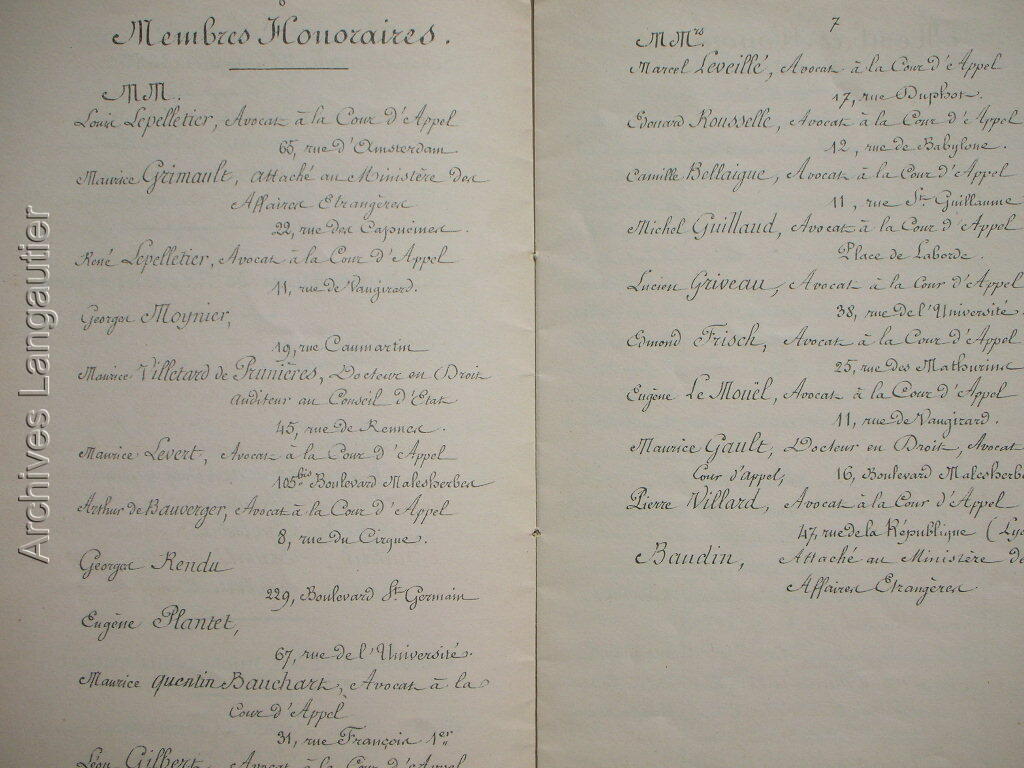 Membres Honoraires.
MM.
Louis Lepelletier, Avocat à la Cour d'Appel
65, rue d'Amsterdam
Maurice Grimault, attaché au Ministère des
Affaires Etrangères
22, rue des Capucines.
René Lepelletier, Avocat à la Cour d'Appel
11, rue de Vaugirard.
Georges Moynier,
19, rue Caumartin
Maurice Villetard de Prunières, Docteur en Droit
auditeur au Conseil d'Etat
45, rue de Rennes.
Maurice Levert, Avocat à la Cour d'Appel
105bis Boulevard Malesherbes
Arthur de Bauverger, Avocat à la Cour d'Appel
8, rue du Cirque.
Georges Rendu
229, Boulevard St Germain
Eugène Plantet,
67, rue de l'Université.
Maurice quentin Bauchart, Avocat à la
Cour d'Appel
31, rue François 1er
Léon Gilbert, Avocat à la Cour d'Appel
7
MMrs.
Marcel Leveillé, Avocat à la Cour d'Appel
17, rue Duphot.
Edouard Rousselle, Avocat à la Cour d'Appel
12, rue de Babylone.
Camille Bellaigue, Avocat à la Cour d'Appel
11, rue St Guillaume
Michel Guillaud, Avocat à la Cour d'Appel
Place de Laborde.
Lucien Griveau, Avocat à la Cour d'Appel
38, rue de l'Université.
Edmond Frisch, Avocat à la Cour d'Appel
25, rue des Mathurins
Eugène Le Mouël, Avocat à la Cour d'Appel
11, rue de Vaugirard.
Maurice Gault, Docteur en Droit, Avocat
Cour d'Appel, 16, Boulevard Malesherbes
Pierre Villard, Avocat à la Cour d'Appel
47, rue de la République (Ly
Baudin, Attaché au Ministère de
Affaires Etrangères
Archives Langautier